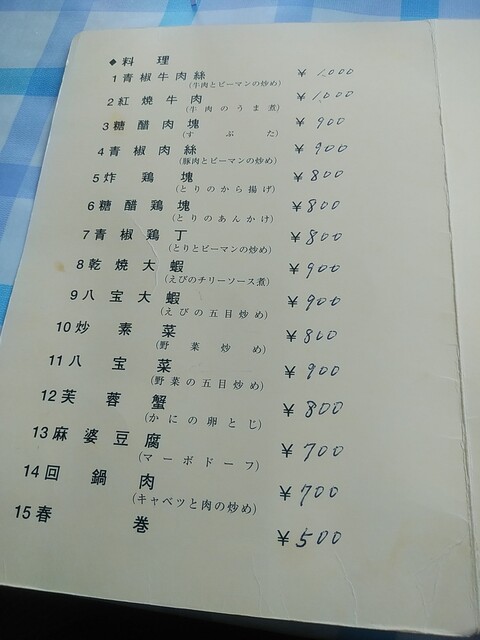 ◆料理
1青椒牛肉絲 ¥1,000
(牛肉とピーマンの炒め)
2紅焼牛肉 ¥1,000
(牛肉のうま煮)
3糖醋肉塊 ¥900
(すぶた)
4青椒肉絲 ¥900
(豚肉とピーマンの炒め)
5炸鶏塊 ¥800
(とりのから揚げ)
6糖醋鶏塊 ¥800
(とりのあんかけ)
7青椒鶏丁 ¥800
(とりとピーマンの炒め)
8乾焼大蝦 ¥900
(えびのチリーソース煮)
9八宝大蝦 ¥900
(えびの五目炒め)
10炒素菜 ¥800
(野菜炒め)
11八宝菜 ¥900
(野菜の五目炒め)
12芙蓉蟹 ¥800
(かにの卵とじ)
13麻婆豆腐 ¥700
(マーボドーフ)
14回鍋肉 ¥700
(キャベツと肉の炒め)
15春巻 ¥500